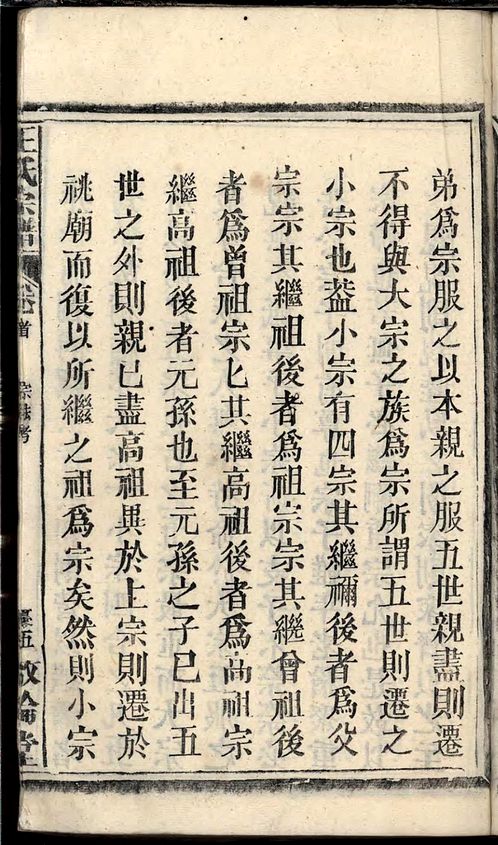 弟爲宗服之以本親之服五世親盡則遷
不得與大宗之族爲宗所謂五世則遷之
小宗也葢小宗有四宗其繼禰後者爲父
宗宗其繼祖後者爲祖宗宗其繼曾祖後
者爲曾祖宗匕其繼高祖後者爲高祖宗
繼高祖後者元孫也至元孫之子已出五
世之外則親已盡高祖異於上宗則遷於
祧廟而復以所繼之祖爲宗矣然則小宗
王氏宗譜
卷首
宗法考
五